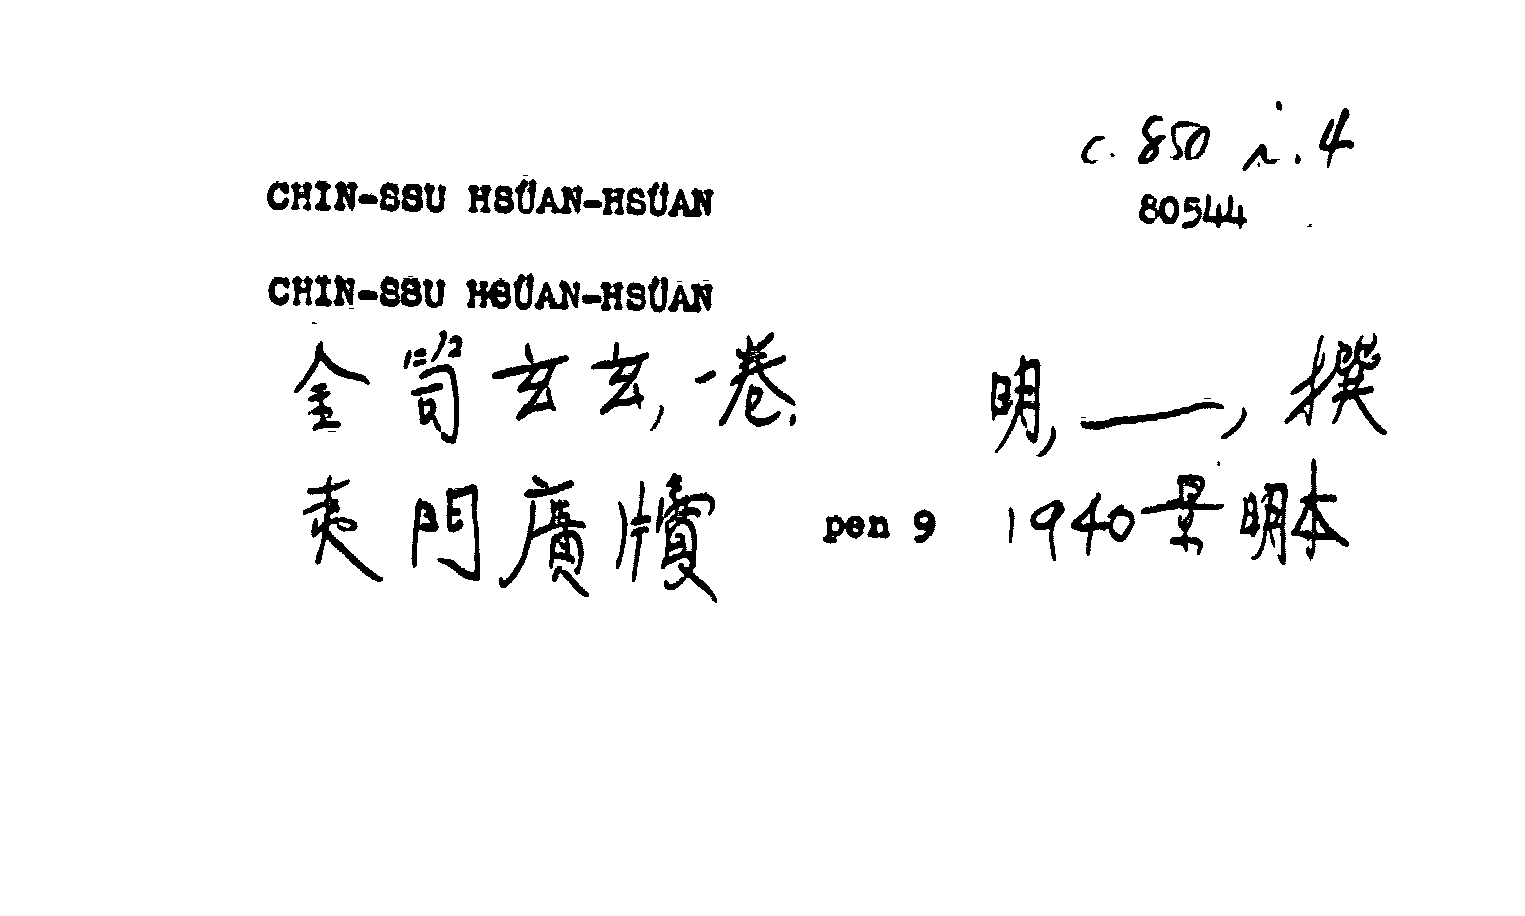 c. 850 n. 4
80544
CHIN-SSU HSÜAN-HSÜAN
CHIN-SSU HSÜAN-HSÜAN
金笥玄玄, 一卷. 明, ——, 撰
夷門廣牘 pen 9 1940景明本